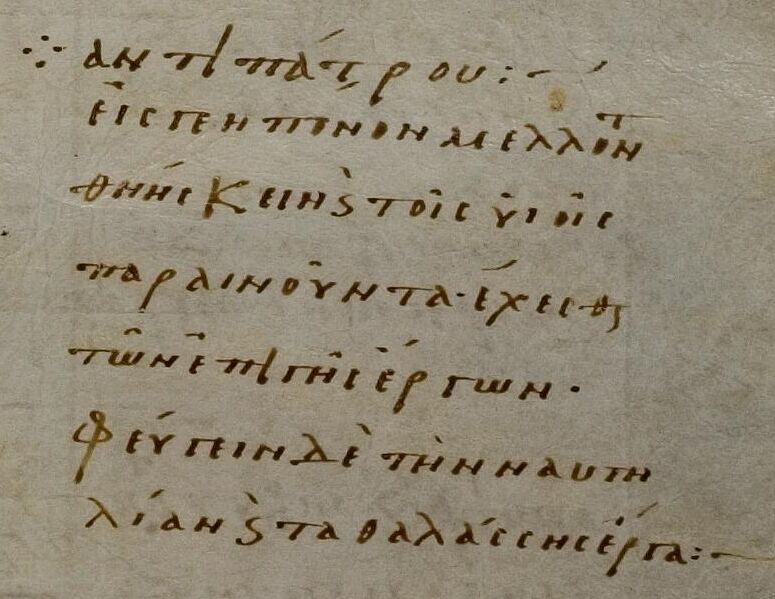 ⁘ ἀντιπάτρου:~
εἰς γεηπόνον μέλλοντ
θνήσκειν ϗ τοῖς υἱοῖς
παραινοῦντα· ἔχεσθαι
τῶν ἐπὶ γῆς ἔργων·
φεύγειν δὲ τὴν ναυτι
λίαν ϗ τὰ θαλάσσης ἔργα:~